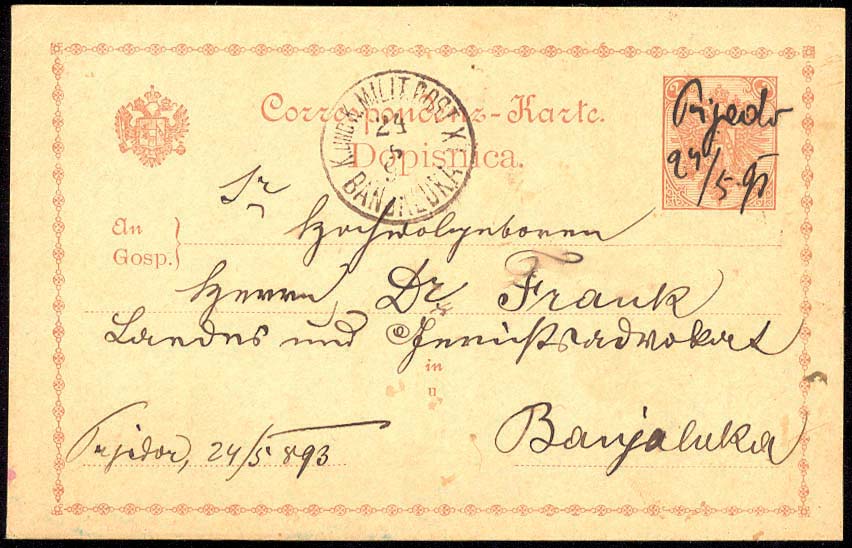 Correspondenz-Karte.
Dopisnica.
K. UND K. MILIT. POST X
24
5
BANJALUKA
Prjedor
24/5 93
Sr
An
Gosp.
Hochwolgeboren
Herrn Dr Frank
Landes und Gerichtsadvokat
in
u
Banjaluka
Prjedor, 24/5 893